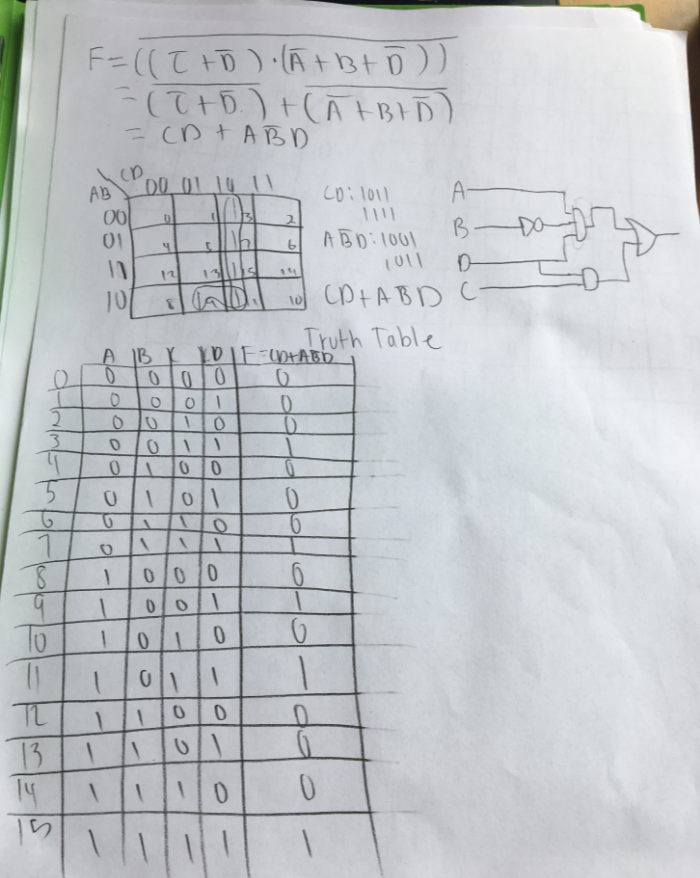 F = ((C̅ + D̅) · (A̅ + B + D̅))
= (C̅ + D̅) + (A̅ + B + D̅)
= CD + AB̅D
CD
AB 00 01 10 11
00 0 1 1 3 2
01 4 5 1 7 6
11 12 13 1 15 14
10 8 1 9 1 11 10
CD: 1011
1111
AB̅D: 1001
1011
CD + AB̅D
A
B
D
C
Truth Table
A B C D F = CD + AB̅D
0 0 0 0 0 0
1 0 0 0 1 0
2 0 0 1 0 0
3 0 0 1 1 1
4 0 1 0 0 0
5 0 1 0 1 0
6 0 1 1 0 0
7 0 1 1 1 1
8 1 0 0 0 0
9 1 0 0 1 1
10 1 0 1 0 0
11 1 0 1 1 1
12 1 1 0 0 0
13 1 1 0 1 0
14 1 1 1 0 0
15 1 1 1 1 1